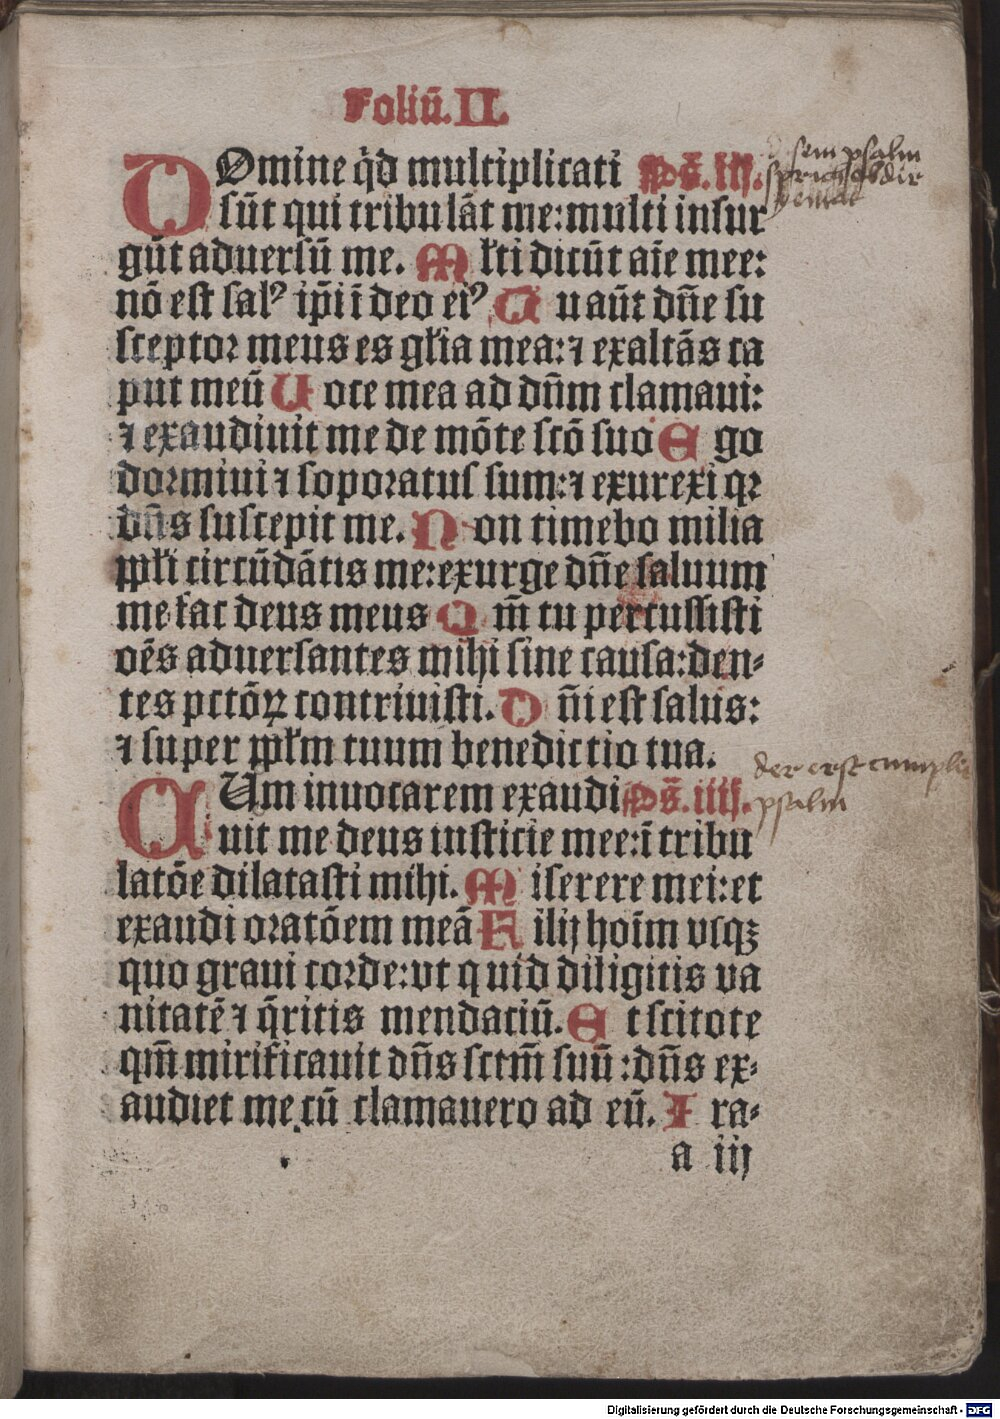 Foliū. II.
DOmine q̊d multiplicati Ps̄. iij.
sūt qui tribulāt me: multi insur
gūt aduersū me. Mł̓ti dicūt aīe mee:
nō est salꝰ ip̄i ī deo eiꝰ Qu aūt dn̄e su
sceptor meus es gł̓ia mea: ⁊ exaltās ca
put meū Uoce mea ad dn̄m clamaui:
⁊ exaudiuit me de mōte scō suo Ego
dormiui ⁊ soporatus sum: ⁊ exurexi qꝛ
dn̄s suscepit me. Non timebo milia
ppł̓i circūdātis me: exurge dn̄e saluum
me fac deus meus Qm̄ tu percussisti
oēs aduersantes mihi sine causa: den⸗
tes pctōꝝ contriuisti. Dn̄i est salus:
⁊ super ppł̓m tuum benedictio tua.
CUm inuocarem exaudi Ps̄. iiij.
uit me deus iusticie mee: ī tribu
latōe dilatasti mihi. Miserere mei: et
exaudi oratōem meā Filij hoīm vsqꝫ
quo graui corde: vt quid diligitis va
nitatē ⁊ q̄ritis mendaciū. Et scitote
qm̄ mirificauit dn̄s sctm̄ suū: dn̄s ex⸗
audiet me cū clamauero ad eū. Ira⸗
a iij
sem psalm
der erst cumplet
psalm
Digitalisierung gefördert durch die Deutsche Forschungsgemeinschaft - DFG